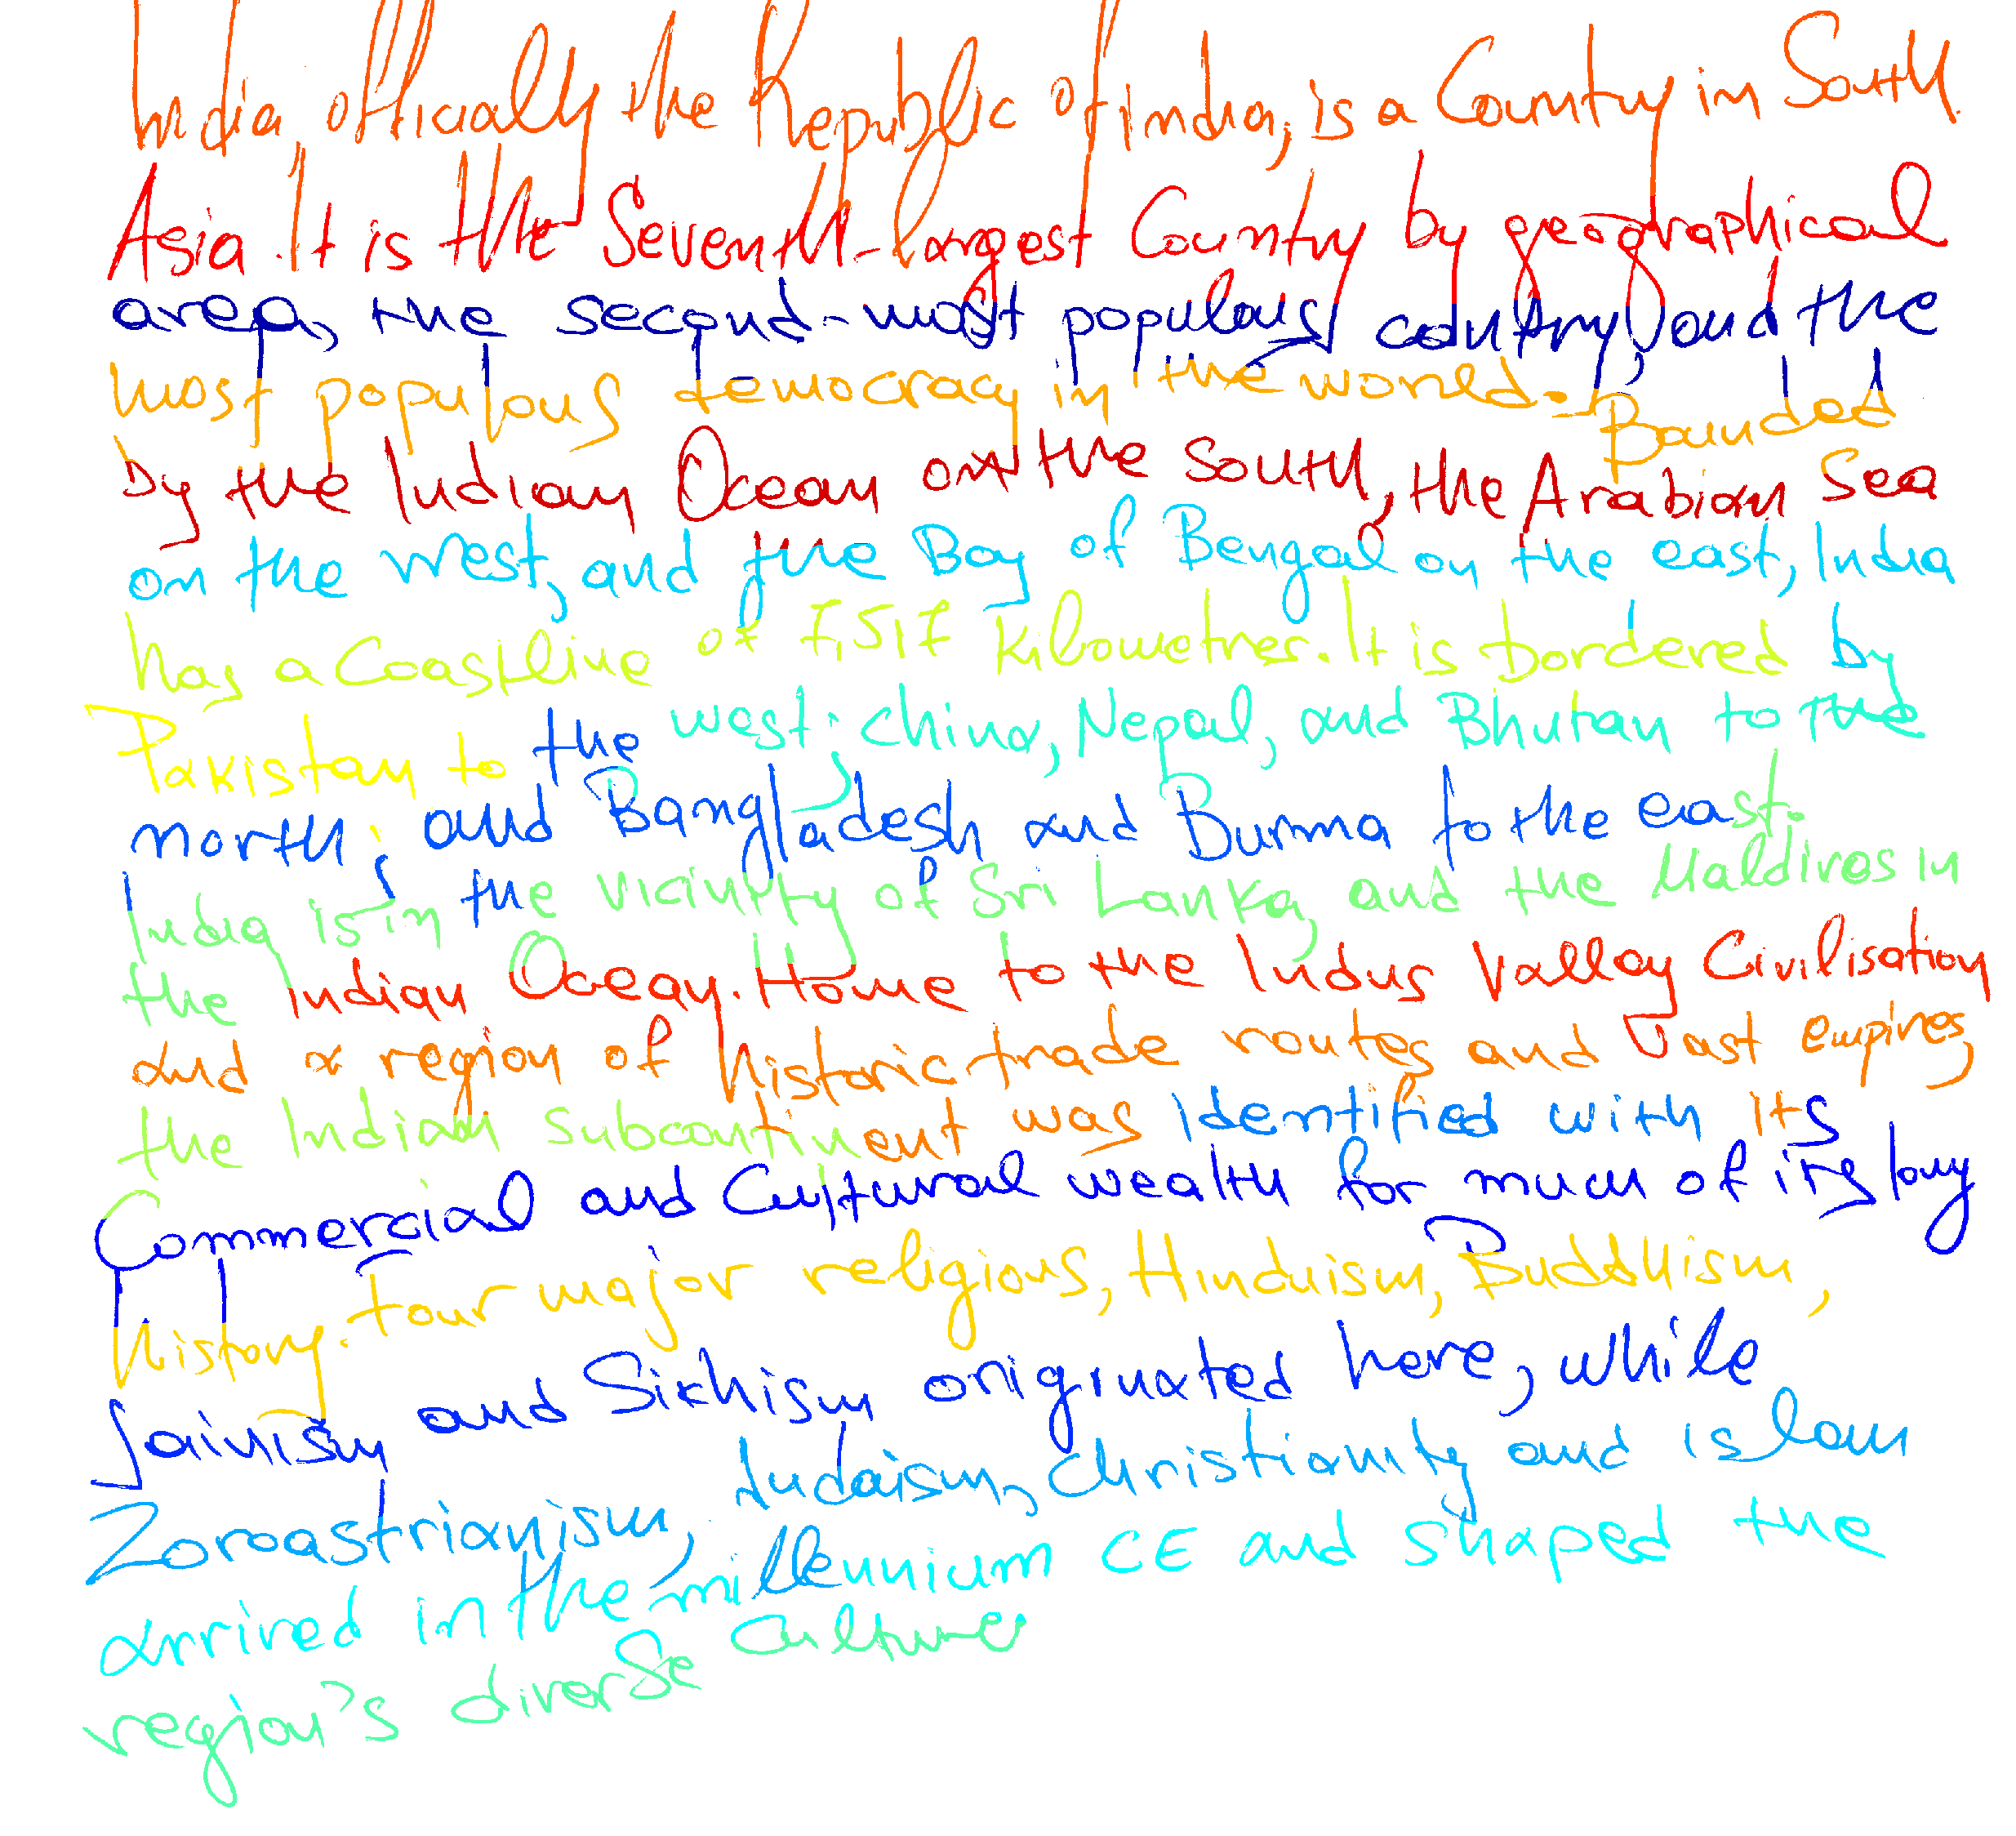 India, officially the Republic of india, is a Country in South
Asia. It is the Seventh-largest Country by geographical
area, the second-most populous country, and the
most populous democracy in the world. Bounded
by the Indian Ocean on the South, the Arabian Sea
on the west, and the Bay of Bengal on the east, India
has a Coastline of 7,517 kilometres. It is bordered by
Pakistan to the west; china, Nepal, and Bhutan to the
north; and Bangladesh and Burma to the east.
India is in the vicinity of Sri Lanka, and the Maldives in
the Indian Ocean. Home to the Indus Valley Civilisation
and a region of historic trade routes and vast empires,
the Indian subcontinent was identified with its
Commercial and Cultural wealth for much of its long
history. Four major religious, Hinduism, Buddhism,
Jainism and Sikhism originated here, while
Zoroastrianism, Judaism, Christianity and islam
arrived in the millennium CE and shaped the
region's diverse Culture.